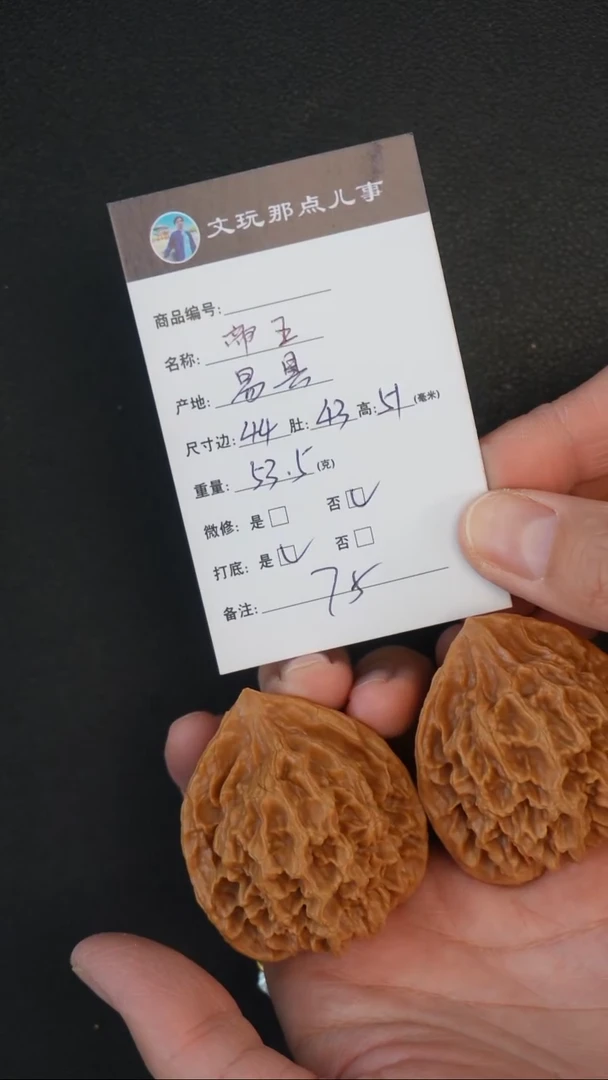 文玩那点儿事
商品编号:
名称: 帝王
产地: 易县
尺寸边: 44 肚: 43 高: 51 (毫米)
重量: 53.5 (克)
微修: 是 否
打底: 是 否
备注: 75